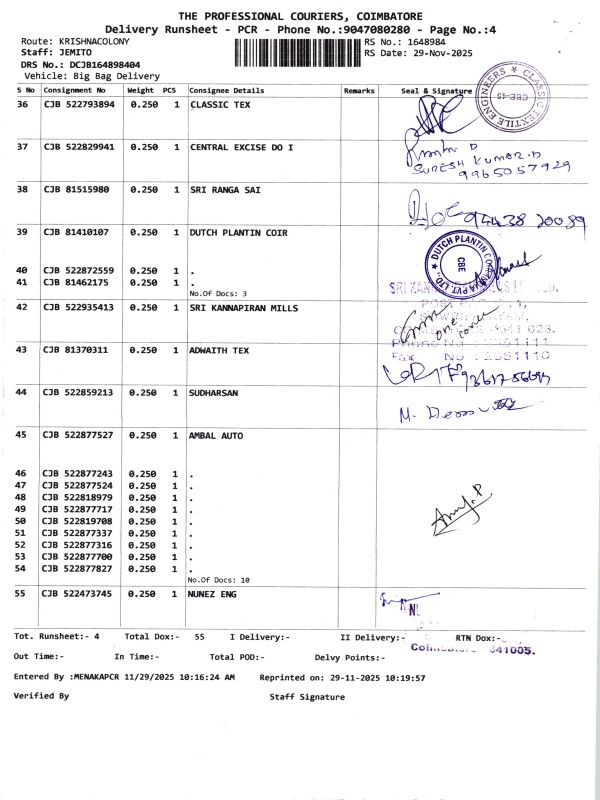 THE PROFESSIONAL COURIERS, COIMBATORE
Delivery Runsheet - PCR - Phone No.:9047080280 - Page No.:4
Route: KRISHNACOLONY
RS No.: 1648984
Staff: JEMITO
RS Date: 29-Nov-2025
DRS No.: DCJB164898404
Vehicle: Big Bag Delivery
S No Consignment No Weight PCS Consignee Details Remarks Seal & Signature
36 CJB 522793894 0.250 1 CLASSIC TEX
CLASSIC TEXTILE ENGINEERS
CBE-45
37 CJB 522829941 0.250 1 CENTRAL EXCISE DO I
SURESH KUMAR.D
9965057929
38 CJB 81515980 0.250 1 SRI RANGA SAI
94438 20089
39 CJB 81410107 0.250 1 DUTCH PLANTIN COIR
DUTCH PLANTIN
CBE
PVT. LTD.
40 CJB 522872559 0.250 1 .
41 CJB 81462175 0.250 1 .
No.Of Docs: 3
42 CJB 522935413 0.250 1 SRI KANNAPIRAN MILLS
one cover
641 028.
Phone No : 2351111
Fax No : 2351110
43 CJB 81370311 0.250 1 ADWAITH TEX
44 CJB 522859213 0.250 1 SUDHARSAN
45 CJB 522877527 0.250 1 AMBAL AUTO
46 CJB 522877243 0.250 1 .
47 CJB 522877524 0.250 1 .
48 CJB 522818979 0.250 1 .
49 CJB 522877717 0.250 1 .
50 CJB 522819708 0.250 1 .
51 CJB 522877337 0.250 1 .
52 CJB 522877316 0.250 1 .
53 CJB 522877700 0.250 1 .
54 CJB 522877827 0.250 1 .
No.Of Docs: 10
55 CJB 522473745 0.250 1 NUNEZ ENG
Tot. Runsheet:- 4 Total Dox:- 55 I Delivery:- II Delivery:- RTN Dox:-
641005.
Out Time:- In Time:- Total POD:- Delvy Points:-
Entered By :MENAKAPCR 11/29/2025 10:16:24 AM Reprinted on: 29-11-2025 10:19:57
Verified By Staff Signature